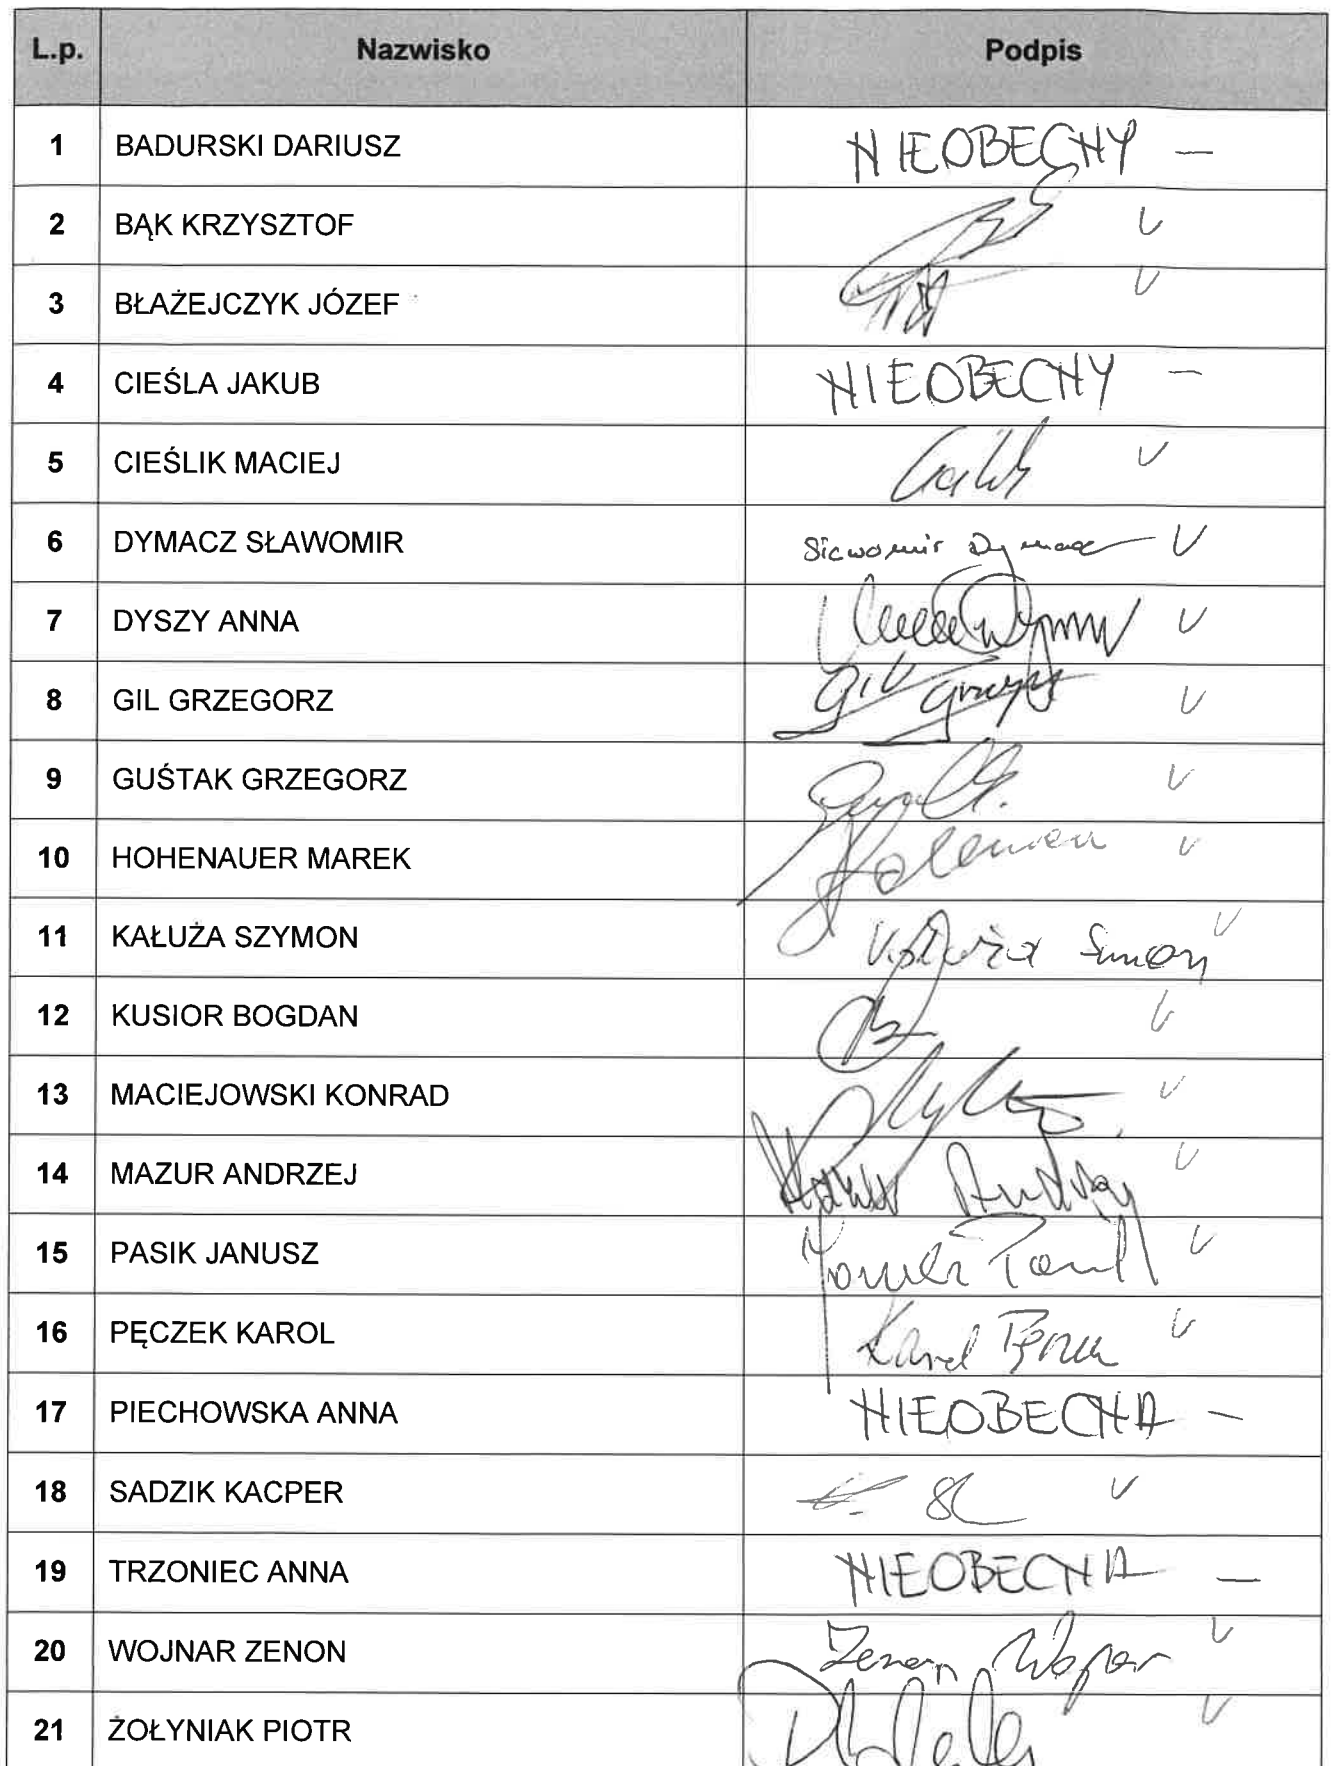 L.p. Nazwisko Podpis
1 BADURSKI DARIUSZ NIEOBECNY —
2 BĄK KRZYSZTOF V
3 BŁAŻEJCZYK JÓZEF V
4 CIEŚLA JAKUB NIEOBECNY —
5 CIEŚLIK MACIEJ V
6 DYMACZ SŁAWOMIR Sławomir Dymacz V
7 DYSZY ANNA V
8 GIL GRZEGORZ Gil Grzegorz V
9 GUŚTAK GRZEGORZ V
10 HOHENAUER MAREK V
11 KAŁUŻA SZYMON Kałuża Szymon V
12 KUSIOR BOGDAN V
13 MACIEJOWSKI KONRAD V
14 MAZUR ANDRZEJ Mazur Andrzej V
15 PASIK JANUSZ V
16 PĘCZEK KAROL Karol Pęczek V
17 PIECHOWSKA ANNA NIEOBECNA —
18 SADZIK KACPER V
19 TRZONIEC ANNA NIEOBECNA —
20 WOJNAR ZENON Zenon Wojnar V
21 ŻOŁYNIAK PIOTR V